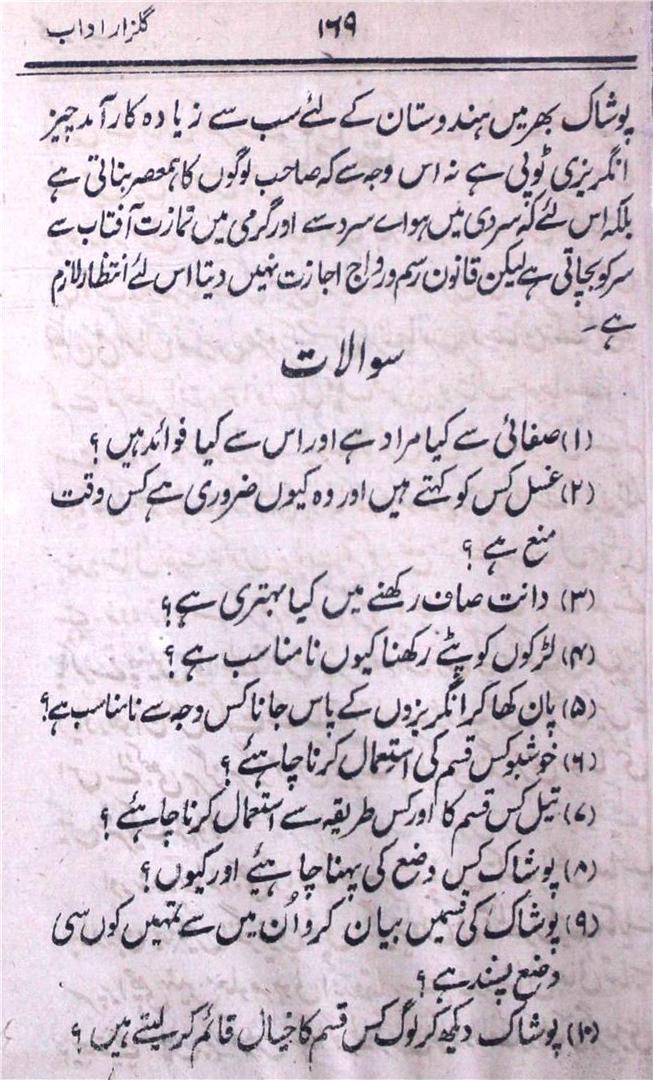 گلزار اداب ۱۶۹
پوشاک بھر میں ہندوستان کے لئے سب سے زیادہ کارآمد چیز
انگریزی ٹوپی ہے نہ اس وجہ سے کہ صاحب لوگوں کا ہمعصر بناتی ہے
بلکہ اس لئے کہ سردی میں ہواے سرد سے اور گرمی میں تمازت آفتاب سے
سر کو بچاتی ہے لیکن قانون رسم و رواج اجازت نہیں دیتا اس لئے انتظار لازم
ہے۔
سوالات
(۱) صفائی سے کیا مراد ہے اور اس سے کیا فوائد ہیں ؟
(۲) غسل کس کو کہتے ہیں اور وہ کیوں ضروری ہے کس وقت
منع ہے ؟
(۳) دانت صاف رکھنے میں کیا بہتری ہے ؟
(۴) لڑکوں کو پٹے رکھنا کیوں نامناسب ہے ؟
(۵) پان کھا کر انگریزوں کے پاس جانا کس وجہ سے نامناسب ہے ؟
(۶) خوشبو کس قسم کی استعمال کرنا چاہئے ؟
(۷) تیل کس قسم کا اور کس طریقہ سے استعمال کرنا چاہئے ؟
(۸) پوشاک کس وضع کی پہننا چاہئیے اور کیوں ؟
(۹) پوشاک کی قسمیں بیان کرو اُن میں سے تمہیں کون سی
وضع پسند ہے ؟
(۱۰) پوشاک دیکھ کر لوگ کس قسم کا خیال قائم کر لیتے ہیں ؟